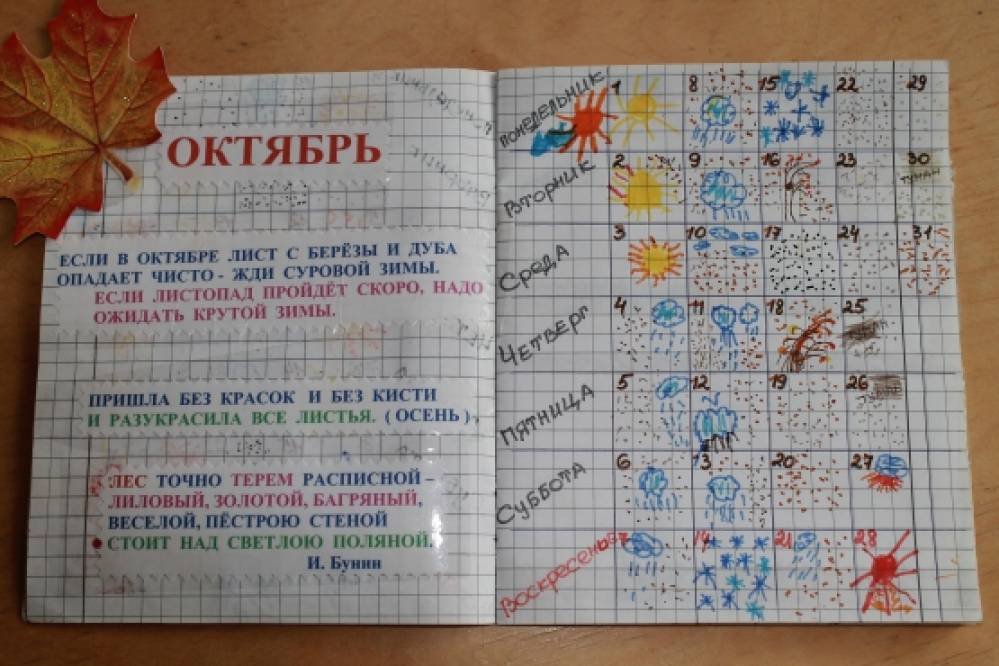 ОКТЯБРЬ
ЕСЛИ В ОКТЯБРЕ ЛИСТ С БЕРЁЗЫ И ДУБА
ОПАДАЕТ ЧИСТО - ЖДИ СУРОВОЙ ЗИМЫ.
ЕСЛИ ЛИСТОПАД ПРОЙДЁТ СКОРО, НАДО
ОЖИДАТЬ КРУТОЙ ЗИМЫ.
ПРИШЛА БЕЗ КРАСОК И БЕЗ КИСТИ
И РАЗУКРАСИЛА ВСЕ ЛИСТЬЯ. (ОСЕНЬ).
ЛЕС ТОЧНО ТЕРЕМ РАСПИСНОЙ –
ЛИЛОВЫЙ, ЗОЛОТОЙ, БАГРЯНЫЙ,
ВЕСЕЛОЙ, ПЁСТРОЮ СТЕНОЙ
СТОИТ НАД СВЕТЛОЮ ПОЛЯНОЙ.
И. Бунин
понедельник 1 8 15 22 29
Вторник 2 9 16 23 30
туман
Среда 3 10 17 24 31
Четверг 4 11 18 25
Пятница 5 12 19 26
Суббота 6 13 20 27
Воскресенье 7 14 21 28